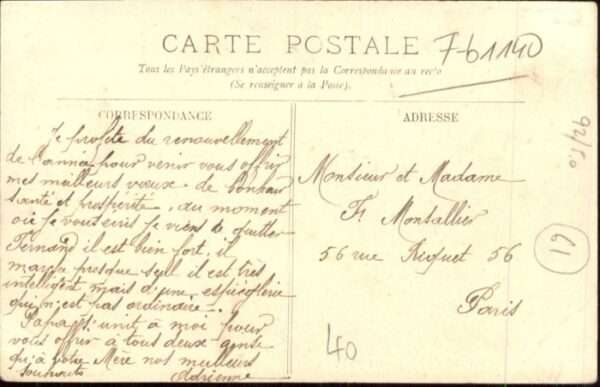 CARTE POSTALE
7-61140
Tous les Pays étrangers n'acceptent pas la Correspondance au recto
(Se renseigner à la Poste).
CORRESPONDANCE
Je profite du renouvellement
de l'année pour venir vous offrir
mes meilleurs vœux de bonheur
santé et prospérité. au moment
où je vous écris je viens de quitter
Fernand il est bien fort, il
marche presque seul il est très
intelligent mais d'une espièglerie
qui n'est pas ordinaire...
Papa s'unit à moi pour
vous offrir à tous deux ainsi
qu'à votre Mère nos meilleurs
souhaits Adrienne
ADRESSE
Monsieur et Madame
Ft Montallier
56 rue Riquet 56
Paris
92/50
61
40